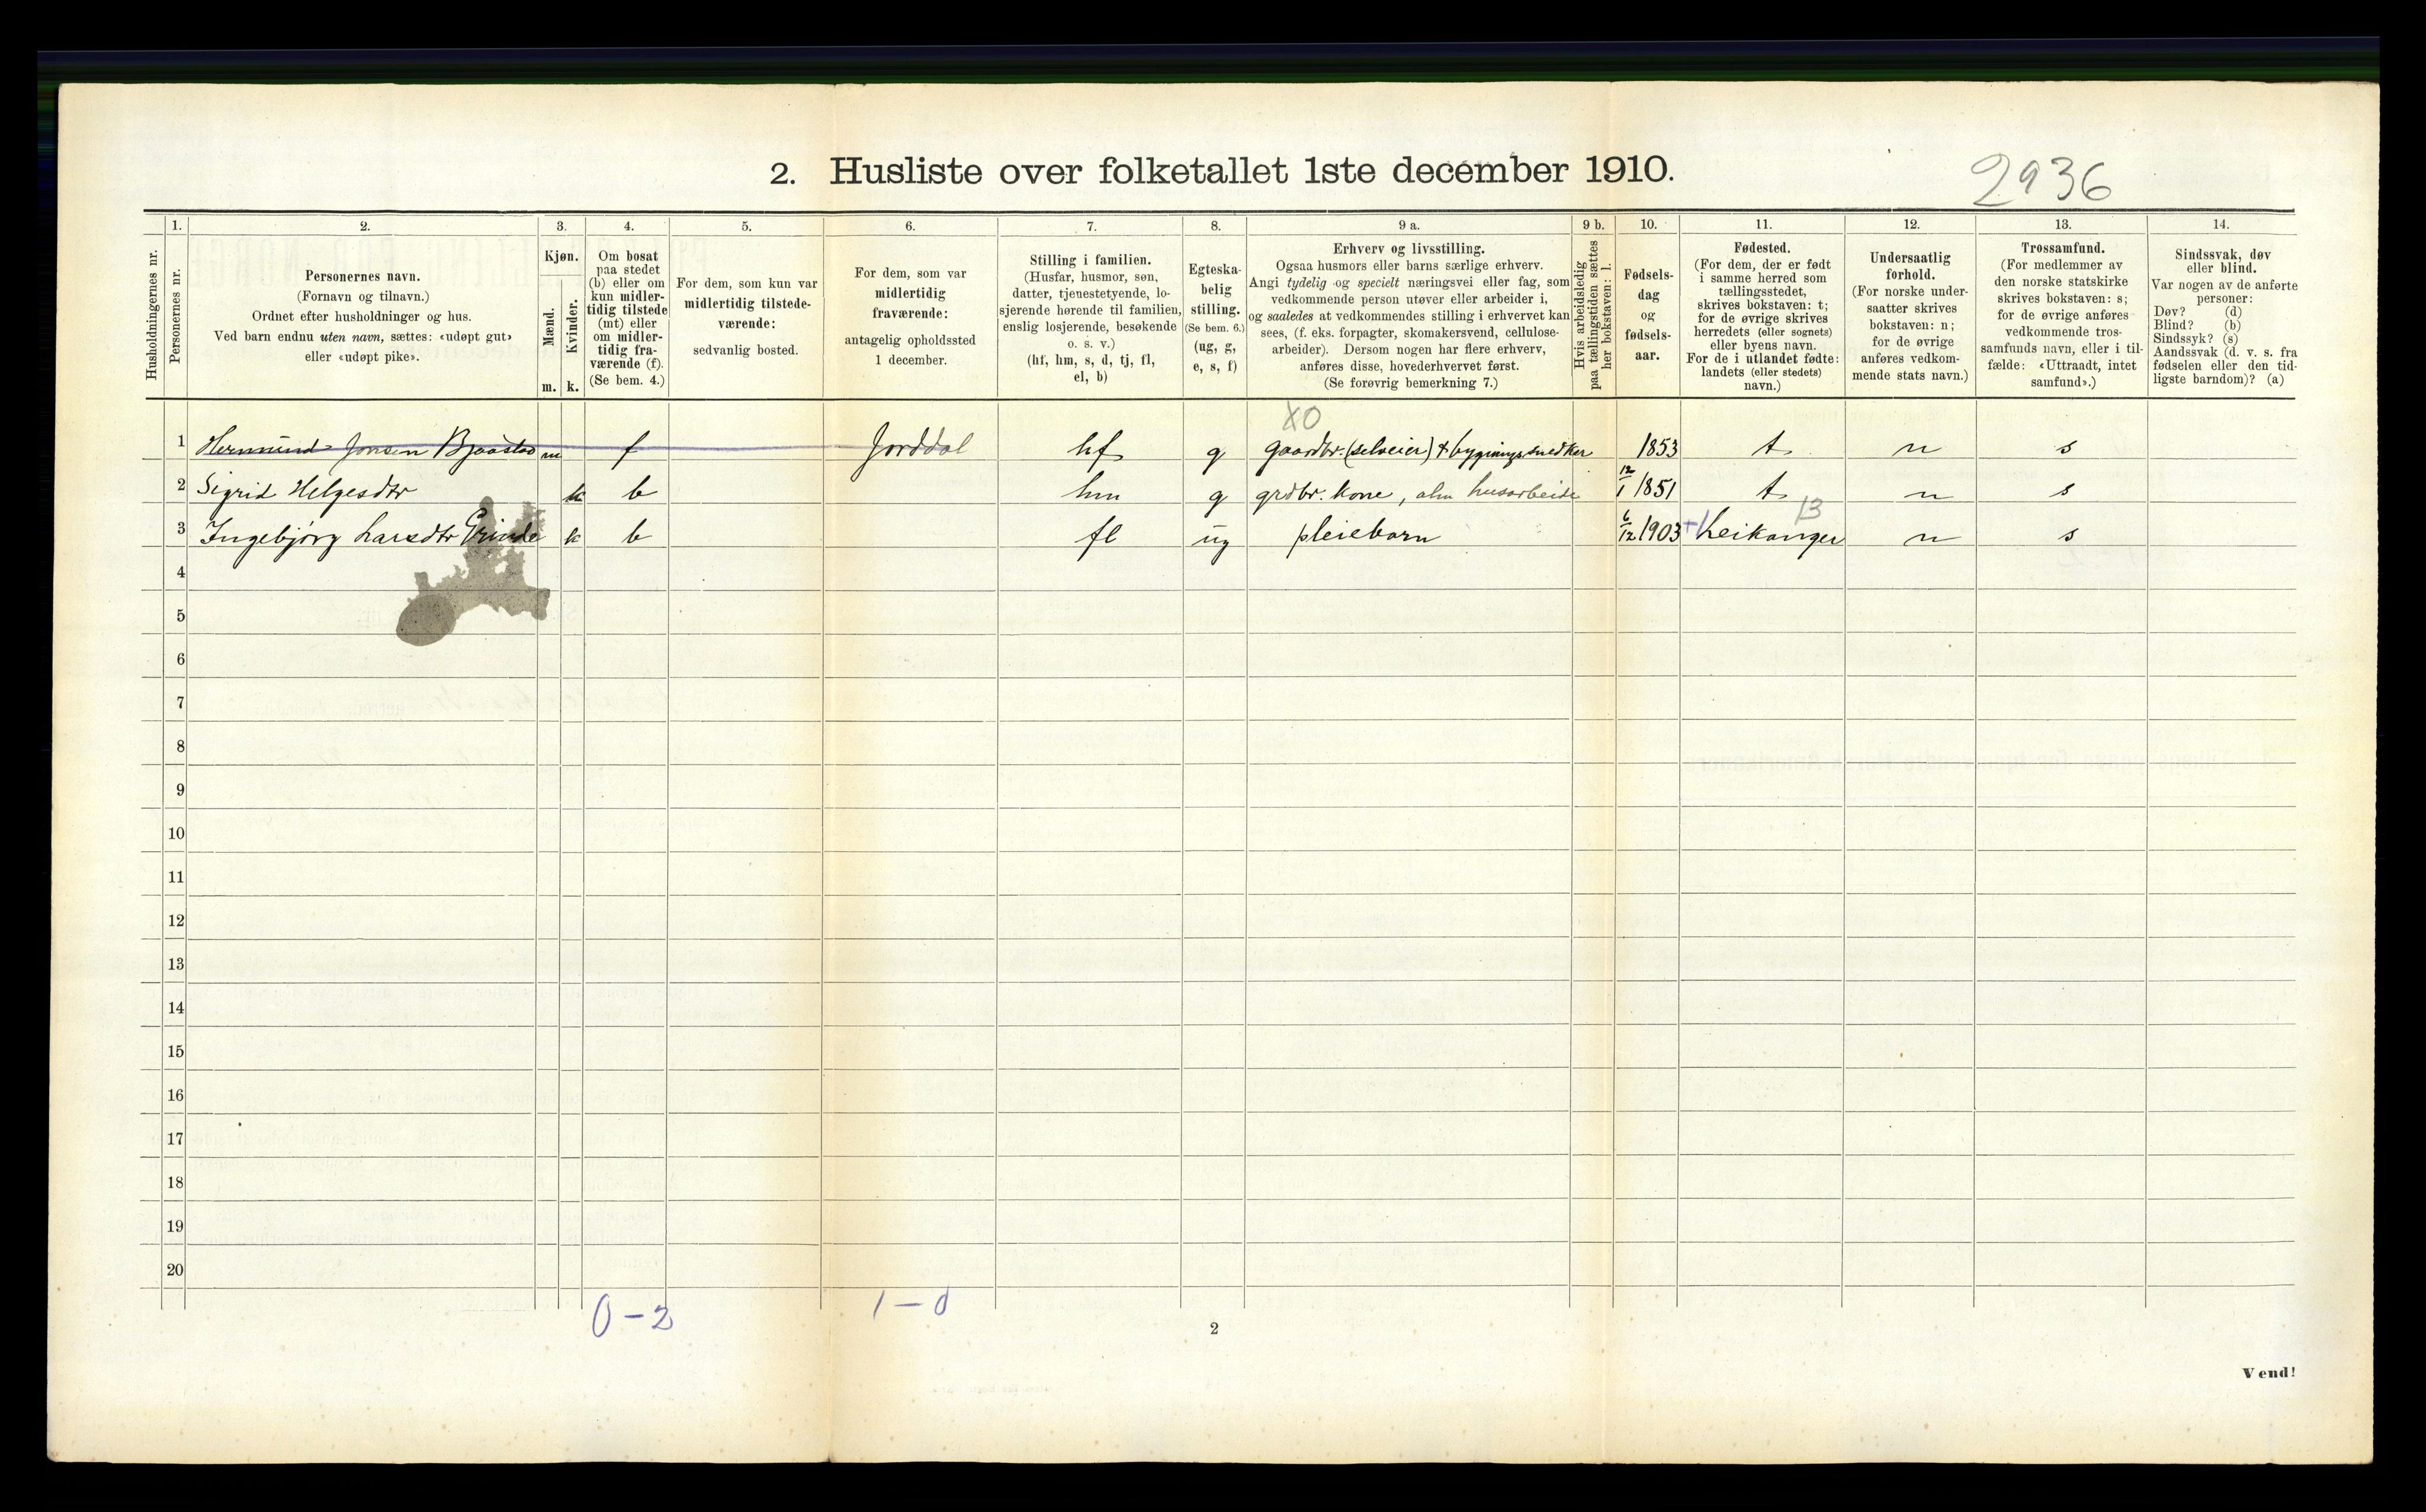 2. Husliste over folketallet 1ste december 1910.
2936
1. 2. 3. 4. 5. 6. 7. 8. 9 a. 9 b. 10. 11. 12. 13. 14.
Husholdningernes nr.
Personernes nr.
Personernes navn.
(Fornavn og tilnavn.)
Ordnet efter husholdninger og hus.
Ved barn endnu uten navn, sættes: «udøpt gut»
eller «udøpt pike».
Kjøn.
Mænd.
Kvinder.
m. k.
Om bosat
paa stedet
(b) eller om
kun midler-
tidig tilstede
(mt) eller
om midler-
tidig fra-
værende (f).
(Se bem. 4.)
For dem, som kun var
midlertidig tilstede-
værende:
sedvanlig bosted.
For dem, som var
midlertidig
fraværende:
antagelig opholdssted
1 december.
Stilling i familien.
(Husfar, husmor, søn,
datter, tjenestetyende, lo-
sjerende hørende til familien,
enslig losjerende, besøkende
o. s. v.)
(hf, hm, s, d, tj, fl,
el, b)
Egteska-
belig
stilling.
(Se bem. 6.)
(ug, g,
e, s, f)
Erhverv og livsstilling.
Ogsaa husmors eller barns særlige erhverv.
Angi tydelig og specielt næringsvei eller fag, som
vedkommende person utøver eller arbeider i,
og saaledes at vedkommendes stilling i erhvervet kan
sees, (f. eks. forpagter, skomakersvend, cellulose-
arbeider). Dersom nogen har flere erhverv,
anføres disse, hovederhvervet først.
(Se forøvrig bemerkning 7.)
Hvis arbeidsledig
paa tællingstiden sættes
her bokstaven: l.
Fødsels-
dag
og
fødsels-
aar.
Fødested.
(For dem, der er født
i samme herred som
tællingsstedet,
skrives bokstaven: t;
for de øvrige skrives
herredets (eller sognets)
eller byens navn.
For de i utlandet fødte:
landets (eller stedets)
navn.)
Undersaatlig
forhold.
(For norske under-
saatter skrives
bokstaven: n;
for de øvrige
anføres vedkom-
mende stats navn.)
Trossamfund.
(For medlemmer av
den norske statskirke
skrives bokstaven: s;
for de øvrige anføres
vedkommende tros-
samfunds navn, eller i til-
fælde: «Uttraadt, intet
samfund».)
Sindssvak, døv
eller blind.
Var nogen av de anførte
personer:
Døv? (d)
Blind? (b)
Sindssyk? (s)
Aandssvak (d. v. s. fra
fødselen eller den tid-
ligste barndom)? (a)
X0
1 Hermund Jonsen Bjaastad m f Jorddal hf g gaardbr. (selveier) & bygningssnedker 1853 t n s
2 Sigrid Helgesdtr k b hm g grdbr. kone, alm husarbeide 12/1 1851 t n s
13
3 Ingebjørg Larsdtr Grinde k b fl ug pleiebarn 6/12 1903 Leikanger n s
4
5
6
7
8
9
10
11
12
13
14
15
16
17
18
19
20
0-2 1-0
2
Vend!